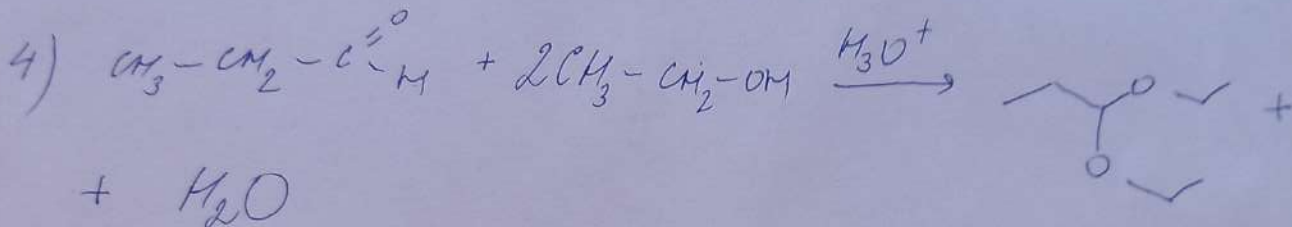 4) CH₃-CH₂-C=O-H + 2CH₃-CH₂-OH H₃O⁺ → O O +
+ H₂O